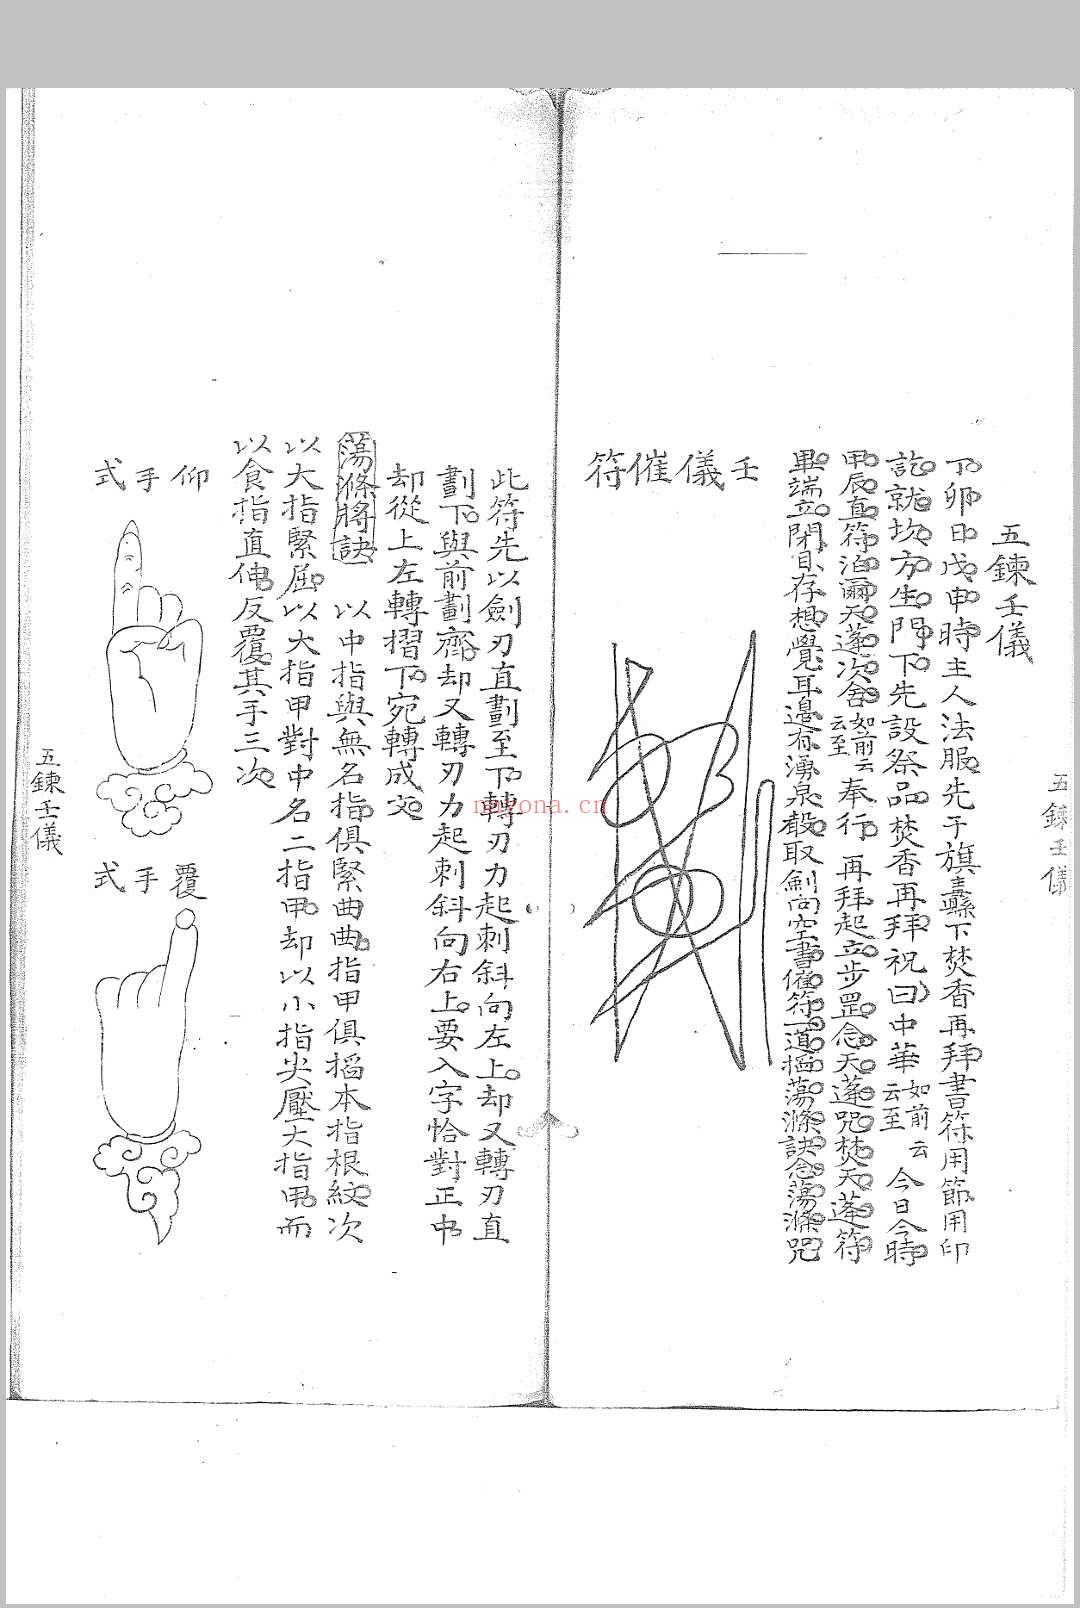 五鍊壬儀
五鍊壬儀
丁卯日戊申時主人法服先于旗纛下焚香再拜書符用節用印
訖就坎方生門下先設祭品焚香再拜祝曰中華如前云云至今日今時
甲辰直符泊爾天蓬次舍如前云云至奉行再拜起立步罡念天蓬咒焚天蓬符
畢端立閉目存想覺耳邊有湧泉聲取劍向空書催符一道掐蕩滌訣念蕩滌咒
壬儀催符
此符先以劍刃直劃至下轉刃力起刺斜向左上却又轉刃直
劃下與前劃齊却又轉刃力起刺斜向右上要入字恰對正中
却從上左轉摺下宛轉成文
蕩滌將訣 以中指與無名指俱緊曲曲指甲俱掐本指根紋次
以大指緊屈以大指甲對中名二指甲却以小指尖壓大指甲而
以食指直伸反覆其手三次
仰手式
覆手式
五鍊壬儀
nayona.cn